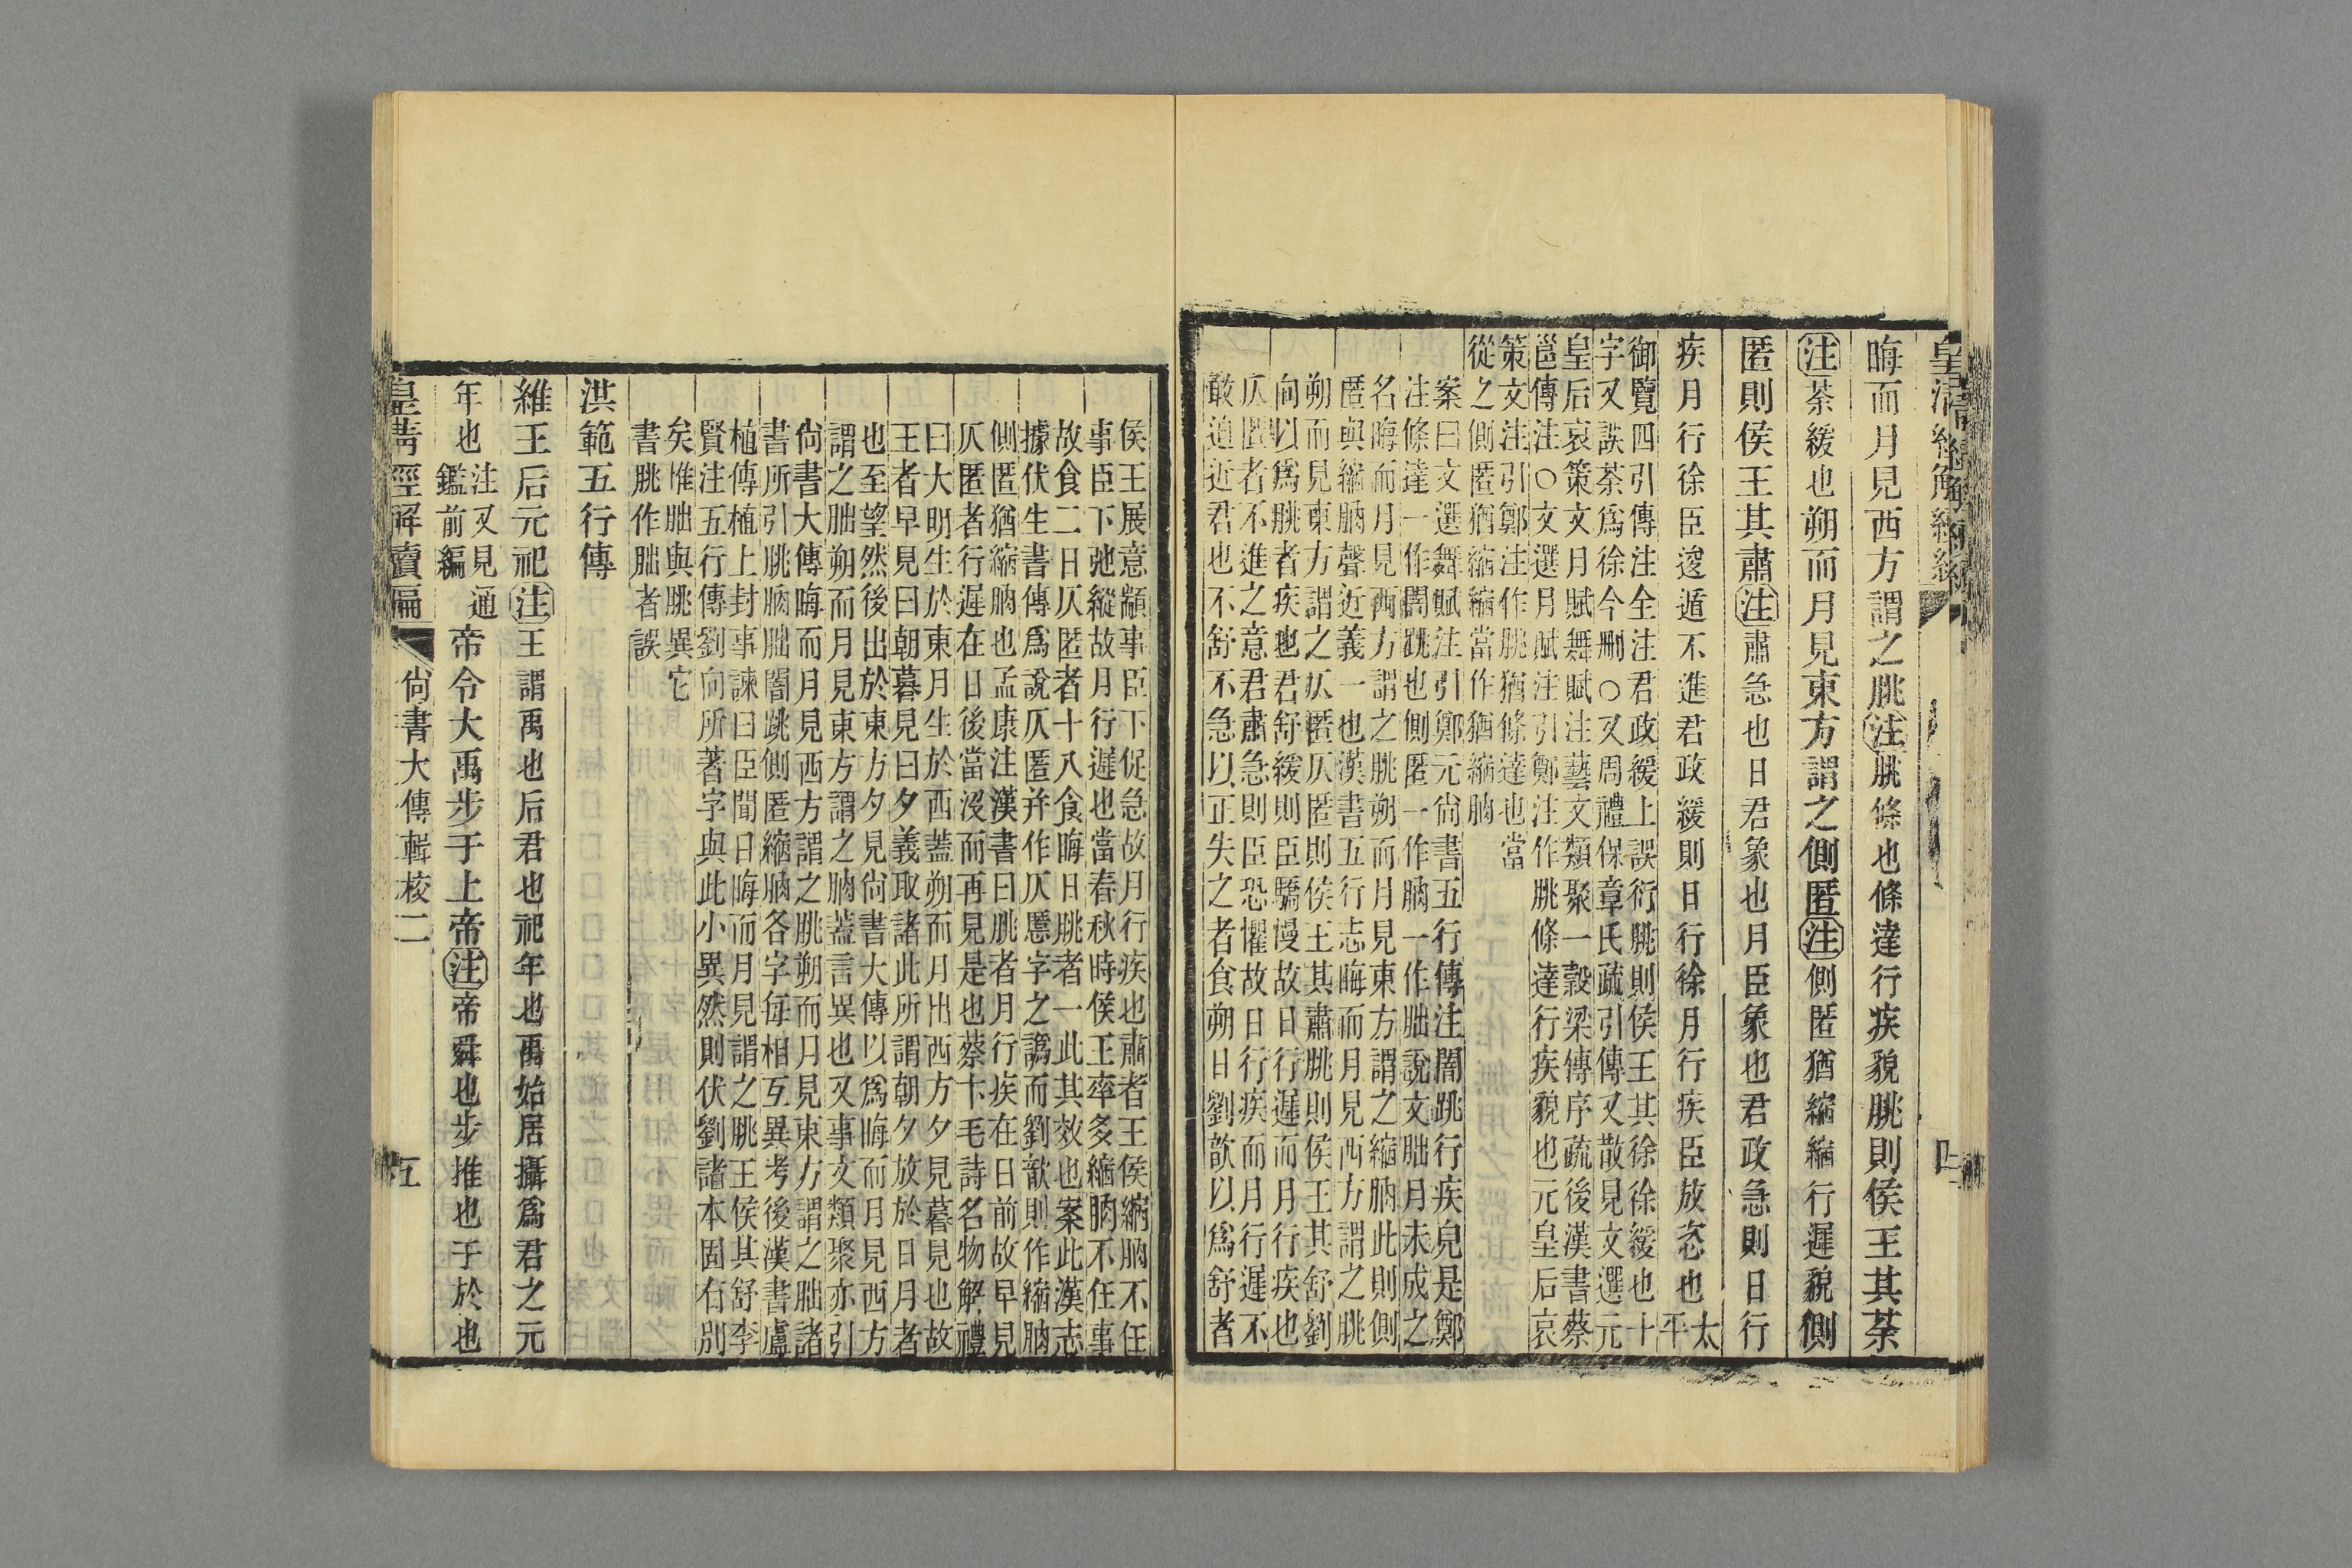 皇清經解續編
四
晦而月見西方謂之朓注朓條也條達行疾貌朓則侯王其荼
注荼緩也朔而月見東方謂之側匿注側匿猶縮縮行遲貌側
匿則侯王其肅注肅急也日君象也月臣象也君政急則日行
疾月行徐臣逡遁不進君政緩則日行徐月行疾臣放恣也太
平
御覽四引傳注全注君政緩上誤衍朓則侯王其徐徐緩也十
字又誤荼爲徐今刪○又周禮保章氏疏引傳又散見文選元
皇后哀策文月賦舞賦注藝文類聚一穀梁傳序疏後漢書蔡
邕傳注○文選月賦注引鄭注作朓條達行疾貌也元皇后哀
策文注引鄭注作朓猶條達也當
從之側匿猶縮縮當作猶縮朒
案曰文選舞賦注引鄭元尚書五行傳注闇跳行疾皃是鄭
注條達一作闇跳也側匿一作朒一作朏說文朏月未成之
名晦而月見西方謂之朓朔而月見東方謂之縮朒此則側
匿與縮朒聲近義一也漢書五行志晦而月見西方謂之朓
朔而見東方謂之仄匿仄匿則侯王其肅朓則侯王其舒劉
向以爲朓者疾也君舒緩則臣驕慢故日行遲而月行疾也
仄匿者不進之意君肅急則臣恐懼故日行疾而月行遲不
敢迫近君也不舒不急以正失之者食朔日劉歆以爲舒者
侯王展意顓事臣下促急故月行疾也肅者王侯縮朒不任
事臣下弛縱故月行遲也當春秋時侯王率多縮朒不任事
故食二日仄匿者十八食晦日朓者一此其效也案此漢志
據伏生書傳爲說仄匿并作仄慝字之譌而劉歆則作縮朒
側匿猶縮朒也孟康注漢書曰朓者月行疾在日前故早見
仄匿者行遲在日後當沒而再見是也蔡卞毛詩名物解禮
曰大明生於東月生於西蓋朔而月出西方夕見暮見也故
王者早見曰朝暮見曰夕義取諸此所謂朝夕放於日月者
也至望然後出於東方夕見尚書大傳以爲晦而月見西方
謂之朏朔而月見東方謂之朒蓋言異也又事文類聚亦引
尚書大傳晦而月見西方謂之朓朔而月見東方謂之朏諸
書所引朓朒朏闇跳側匿縮朒各字每相互異考後漢書盧
植傳植上封事諫曰臣聞日晦而月見謂之朓王侯其舒李
賢注五行傳劉向所著字與此小異然則伏劉諸本固有別
矣惟朏與朓異它
書朓作朏者誤
洪範五行傳
維王后元祀注王謂禹也后君也祀年也禹始居攝爲君之元
年也注又見通
鑑前編帝令大禹步于上帝注帝舜也步推也于於也
皇淸經解續編
尚書大傳輯校二
五